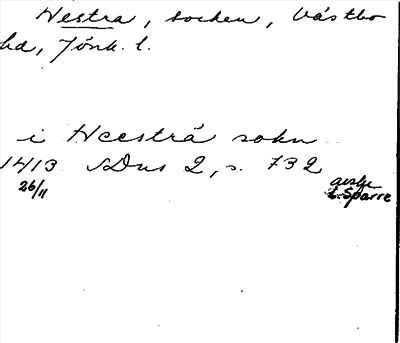 Hestra, socken, Västbo
hd, Jönk. l.
i Heestrå sokn
1413 SDns 2, s. 732
26/11 avskr
L. Sparre